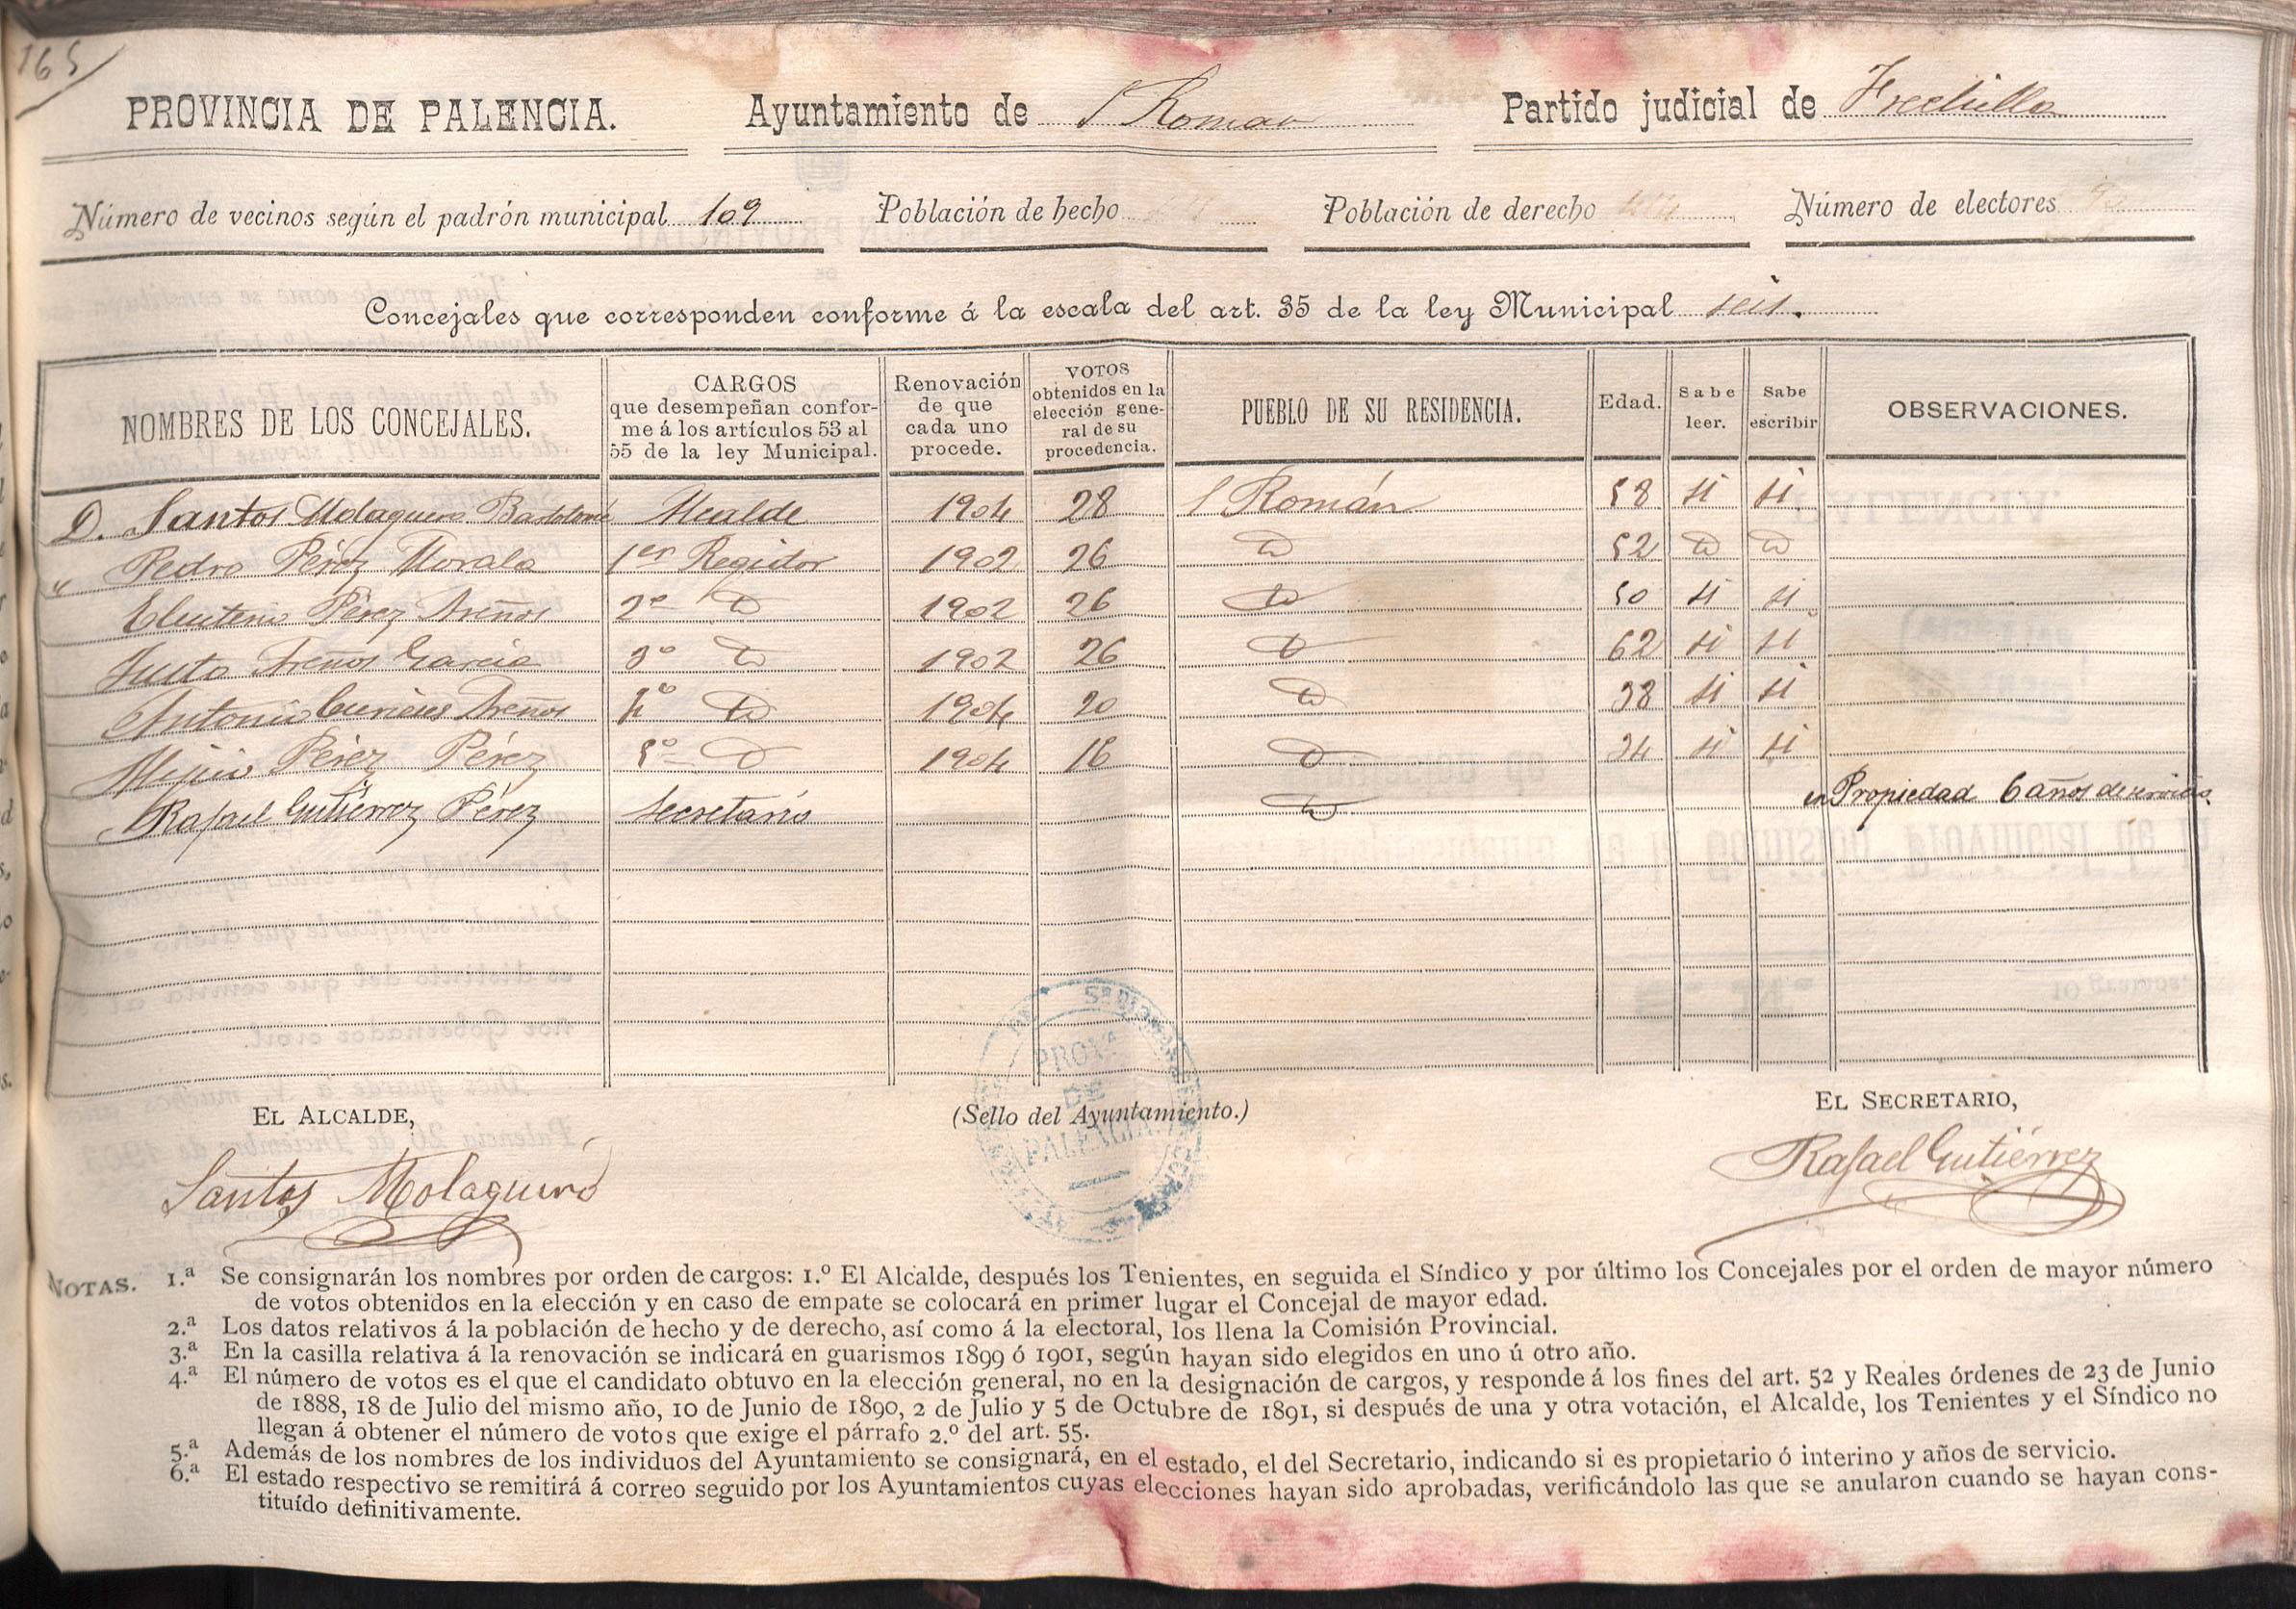 165
PROVINCIA DE PALENCIA. Ayuntamiento de S Roman Partido judicial de Frechilla
Número de vecinos según el padrón municipal 109 Población de hecho Población de derecho Número de electores
Concejales que corresponden conforme á la escala del art. 35 de la ley Municipal seis.
NOMBRES DE LOS CONCEJALES. CARGOS que desempeñan conforme á los artículos 53 al 55 de la ley Municipal. Renovación de que cada uno procede. VOTOS obtenidos en la elección general de su procedencia. PUEBLO DE SU RESIDENCIA. Edad. Sabe leer. Sabe escribir OBSERVACIONES.
D. Santos Molaguero Bartolomé Alcalde 1904 28 S Román 58 si si
" Pedro Pérez Morala 1er Regidor 1902 26 Id 52 Id Id
Eleuterio Pérez Areños 2º Id 1902 26 Id 50 si si
Justo Areños García 3º Id 1902 26 Id 62 si si
Antonio Curieses Areños 4º Id 1904 20 Id 38 si si
Pérez Pérez 5º Id 1904 16 Id 34 si si
Rafael Gutiérrez Pérez Secretario Id en Propiedad 6 años de servicio
EL ALCALDE, (Sello del Ayuntamiento.) EL SECRETARIO,
PROVA DE PALENCIA
Santos Molaguero Rafael Gutiérrez
NOTAS. 1.ª Se consignarán los nombres por orden de cargos: 1.º El Alcalde, después los Tenientes, en seguida el Síndico y por último los Concejales por el orden de mayor número
de votos obtenidos en la elección y en caso de empate se colocará en primer lugar el Concejal de mayor edad.
2.ª Los datos relativos á la población de hecho y de derecho, así como á la electoral, los llena la Comisión Provincial.
3.ª En la casilla relativa á la renovación se indicará en guarismos 1899 ó 1901, según hayan sido elegidos en uno ú otro año.
4.ª El número de votos es el que el candidato obtuvo en la elección general, no en la designación de cargos, y responde á los fines del art. 52 y Reales órdenes de 23 de Junio
de 1888, 18 de Julio del mismo año, 10 de Junio de 1890, 2 de Julio y 5 de Octubre de 1891, si después de una y otra votación, el Alcalde, los Tenientes y el Síndico no
llegan á obtener el número de votos que exige el párrafo 2.º del art. 55.
5.ª Además de los nombres de los individuos del Ayuntamiento se consignará, en el estado, el del Secretario, indicando si es propietario ó interino y años de servicio.
6.ª El estado respectivo se remitirá á correo seguido por los Ayuntamientos cuyas elecciones hayan sido aprobadas, verificándolo las que se anularon cuando se hayan cons-
tituído definitivamente.